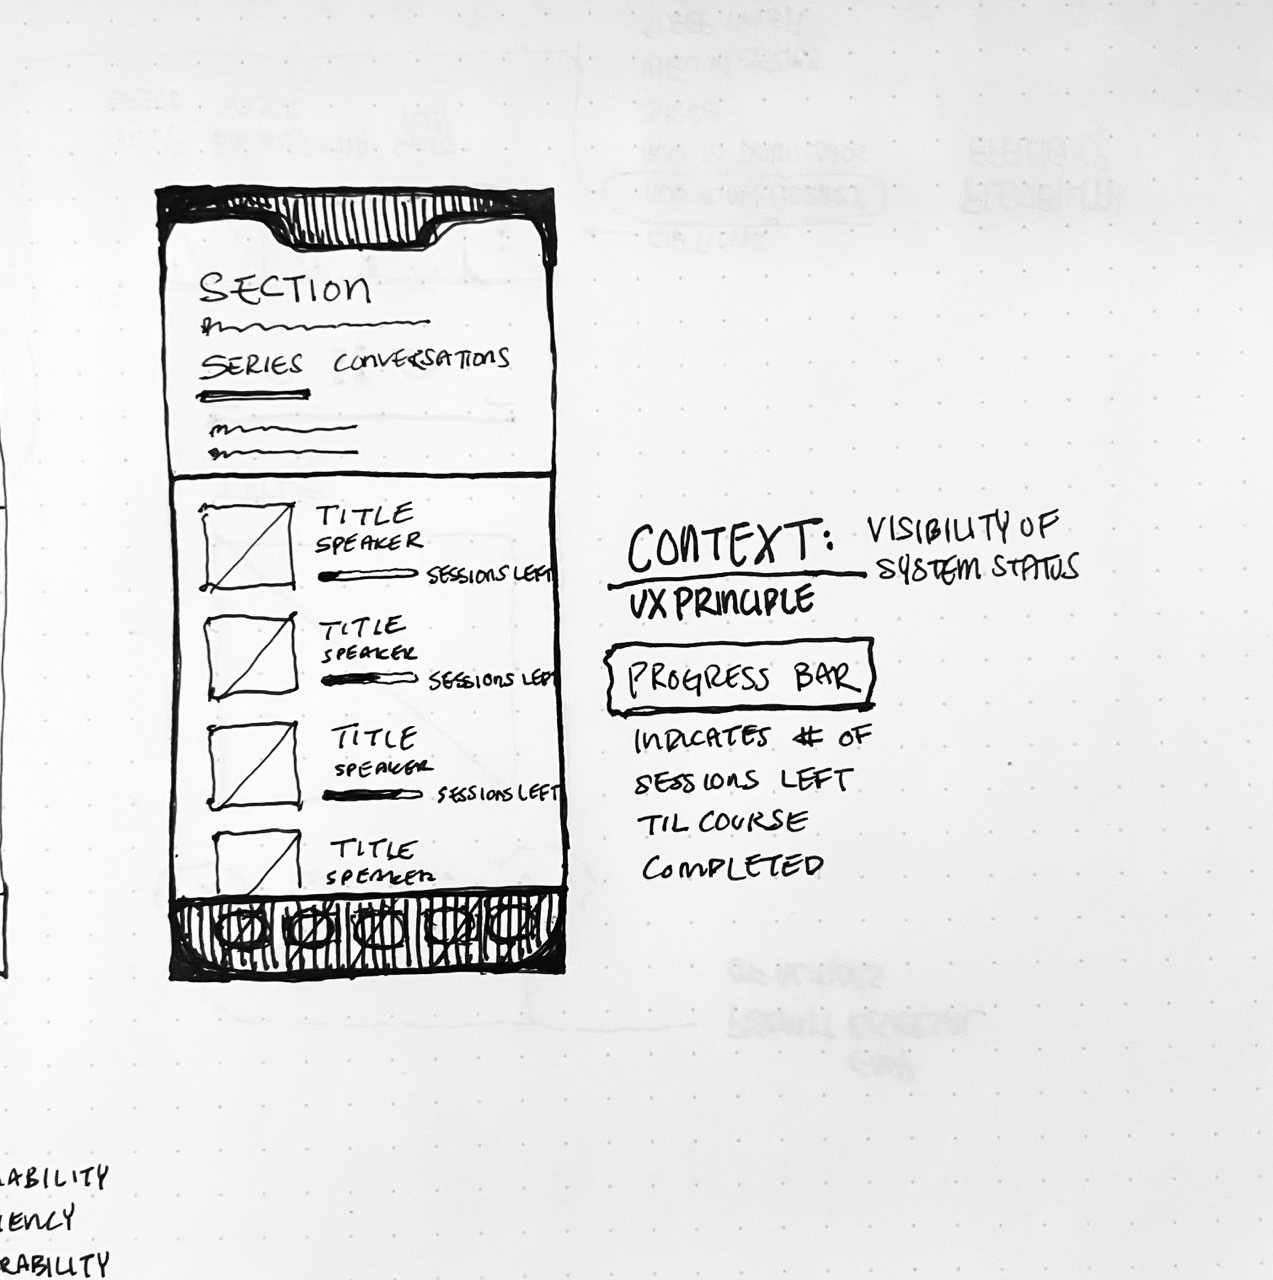 SECTION
SERIES CONVERSATIONS
TITLE
SPEAKER
SESSIONS LEFT
TITLE
SPEAKER
SESSIONS LEFT
TITLE
SPEAKER
SESSIONS LEFT
TITLE
SPEAKER
CONTEXT: VISIBILITY OF
SYSTEM STATUS
UX PRINCIPLE
PROGRESS BAR
INDICATES # OF
SESSIONS LEFT
TIL COURSE
COMPLETED